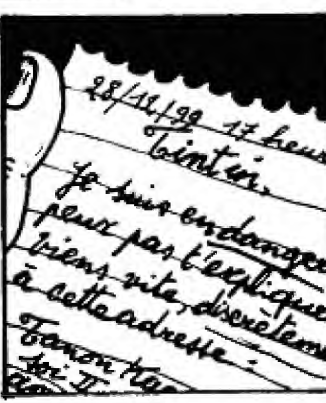 28/12/99 17 heur
Tintin,
Je suis en danger
peux pas t'explique
viens vite, discrètem
à cette adresse :
Tanon
soi II